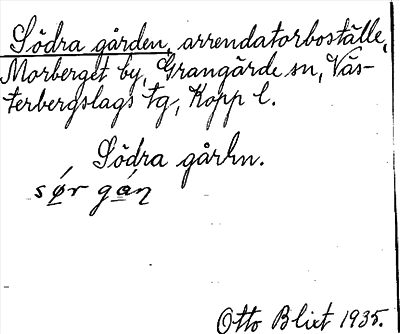 Södra gården, arrendatorboställe,
Morberget by, Grangärde sn, Väs-
terbergslags tg, Kopp l.
Södra gårn.
Otto Blixt 1935.